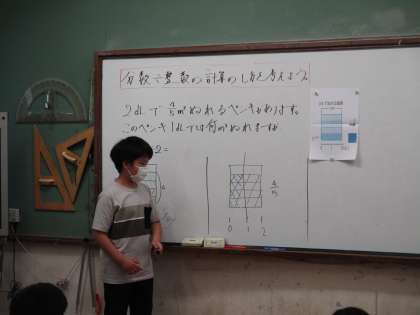 分数÷整数の計算のし方を考えよう。
2dLで4/5㎡ぬれるペンキがあります。
このペンキ1dLでは何㎡ぬれますか
2=
4/5
0 1 2